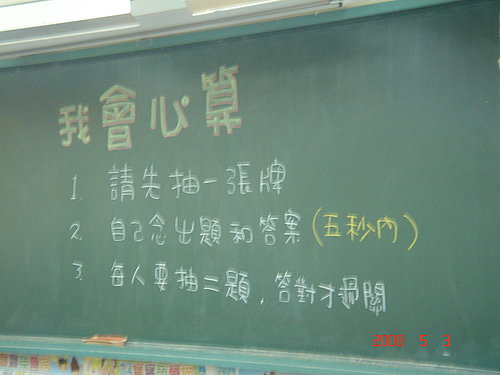 我會心算
1. 請先抽一張牌
2. 自己念出題和答案(五秒內)
3. 每人要抽二題，答對才過關
2008 5 3